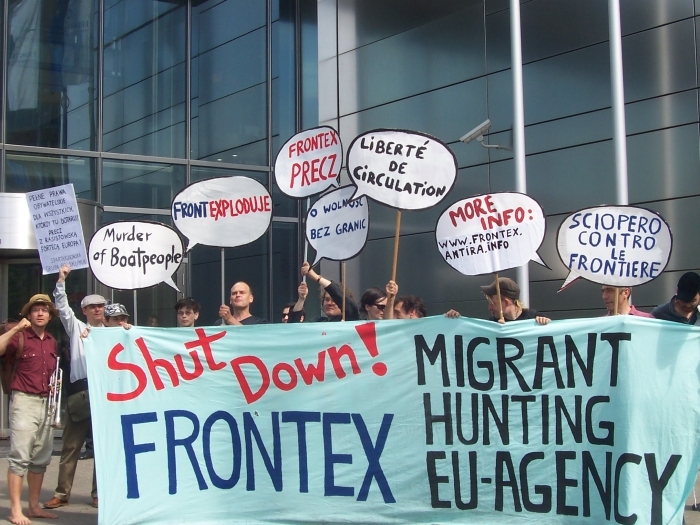 PEŁNE PRAWA
OBYWATELSKIE
DLA WSZYSTKICH
KTÓRZY TU DOTARLI
PRECZ
Z RASISTOWSKĄ
FORTECĄ EUROPĄ!
Murder
of Boatpeople
FRONTEXPLODUJE
FRONTEX
PRECZ
O WOLNOŚĆ
BEZ GRANIC
LIBERTÉ
DE
CIRCULATION
MORE
INFO:
WWW.FRONTEX.
ANTIRA.INFO
SCIOPERO
CONTRO
LE
FRONTIERE
Shut Down!
FRONTEX
MIGRANT
HUNTING
EU-AGENCY